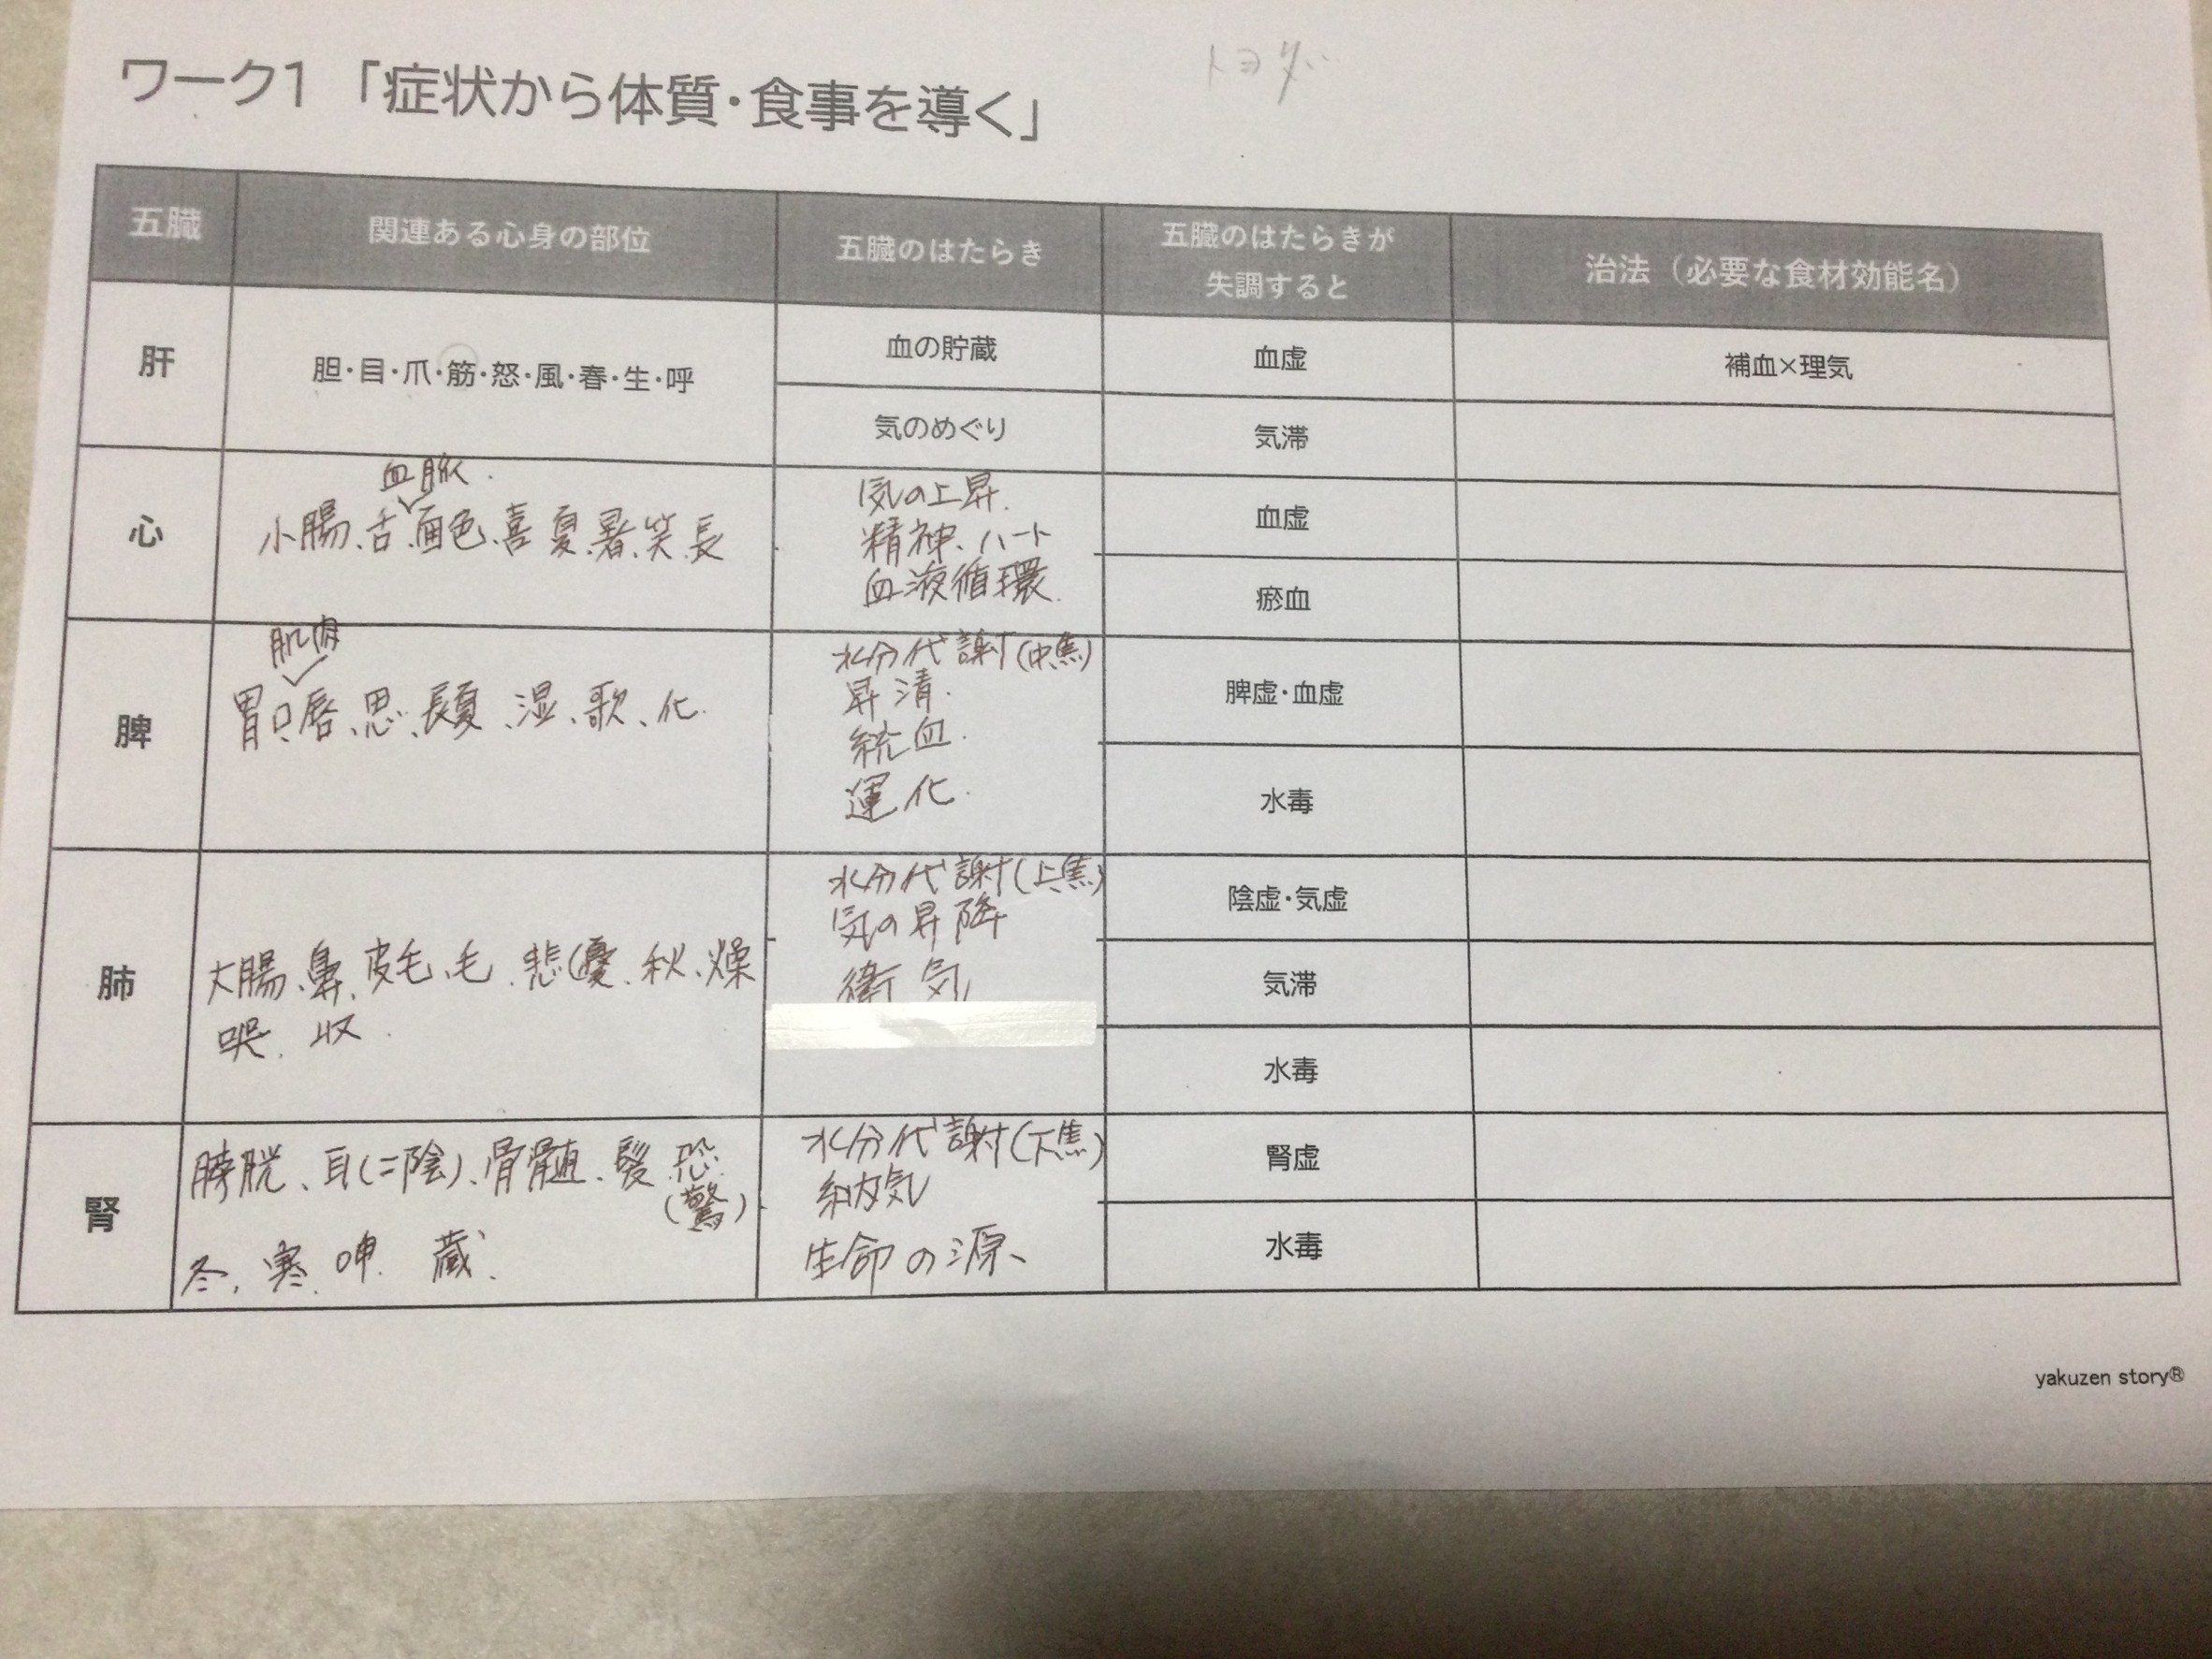 トヨダ
ワーク1「症状から体質・食事を導く」
五臓 関連ある心身の部位 五臓のはたらき 五臓のはたらきが 治法（必要な食材効能名）
失調すると
肝 胆・目・爪・筋・怒・風・春・生・呼 血の貯蔵 血虚 補血×理気
気のめぐり 気滞
血脈.
心 小腸、舌、面色、喜 夏、暑、笑、長 気の上昇. 血虚
精神、ハート
血液循環. 瘀血
肌肉
脾 胃、口、唇、思、長夏、湿、歌、化. 水分代謝(中焦) 脾虚・血虚
昇清.
統血.
運化. 水毒
肺 大腸、鼻、皮毛、毛、悲(憂、秋、燥 水分代謝(上焦) 陰虚・気虚
気の昇降
衛気 気滞
哭. 収. 水毒
腎 膀胱、耳(二陰)、骨髄、髪 恐. 水分代謝(下焦) 腎虚
(驚) 納気
冬、寒. 呻. 蔵. 生命の源、 水毒
yakuzen story®